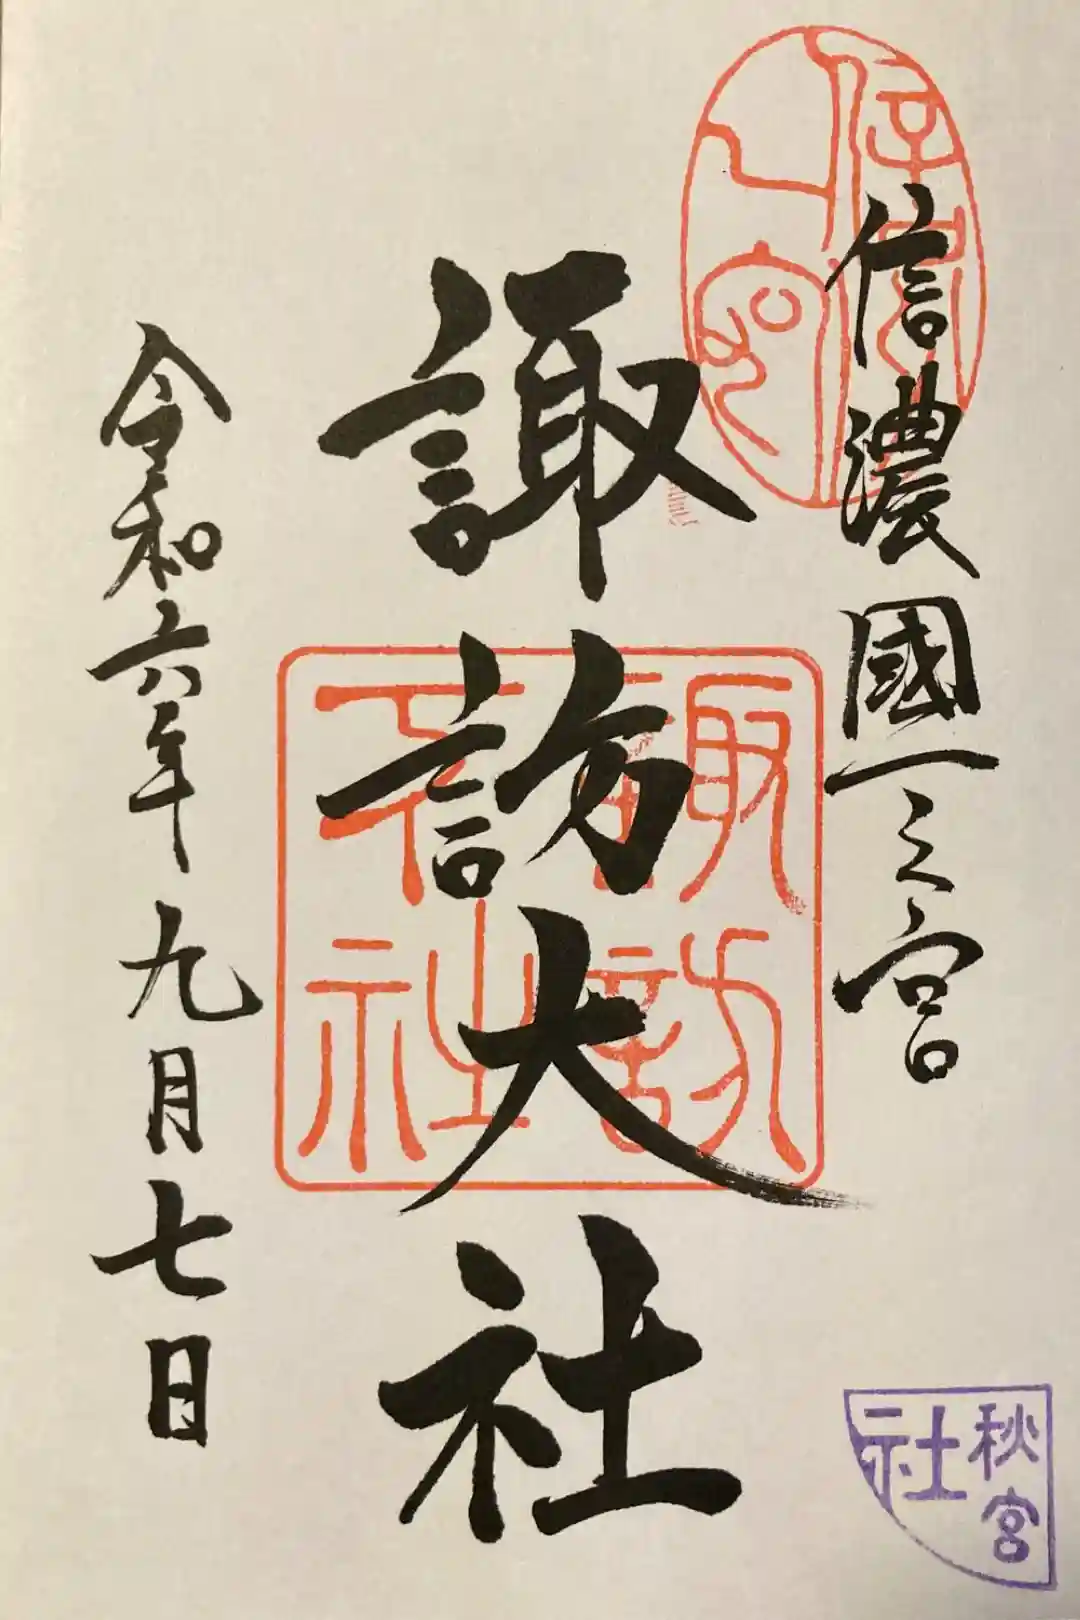 信濃國一之宮
諏訪大社
令和六年九月七日
諏訪
大社
秋宮
社